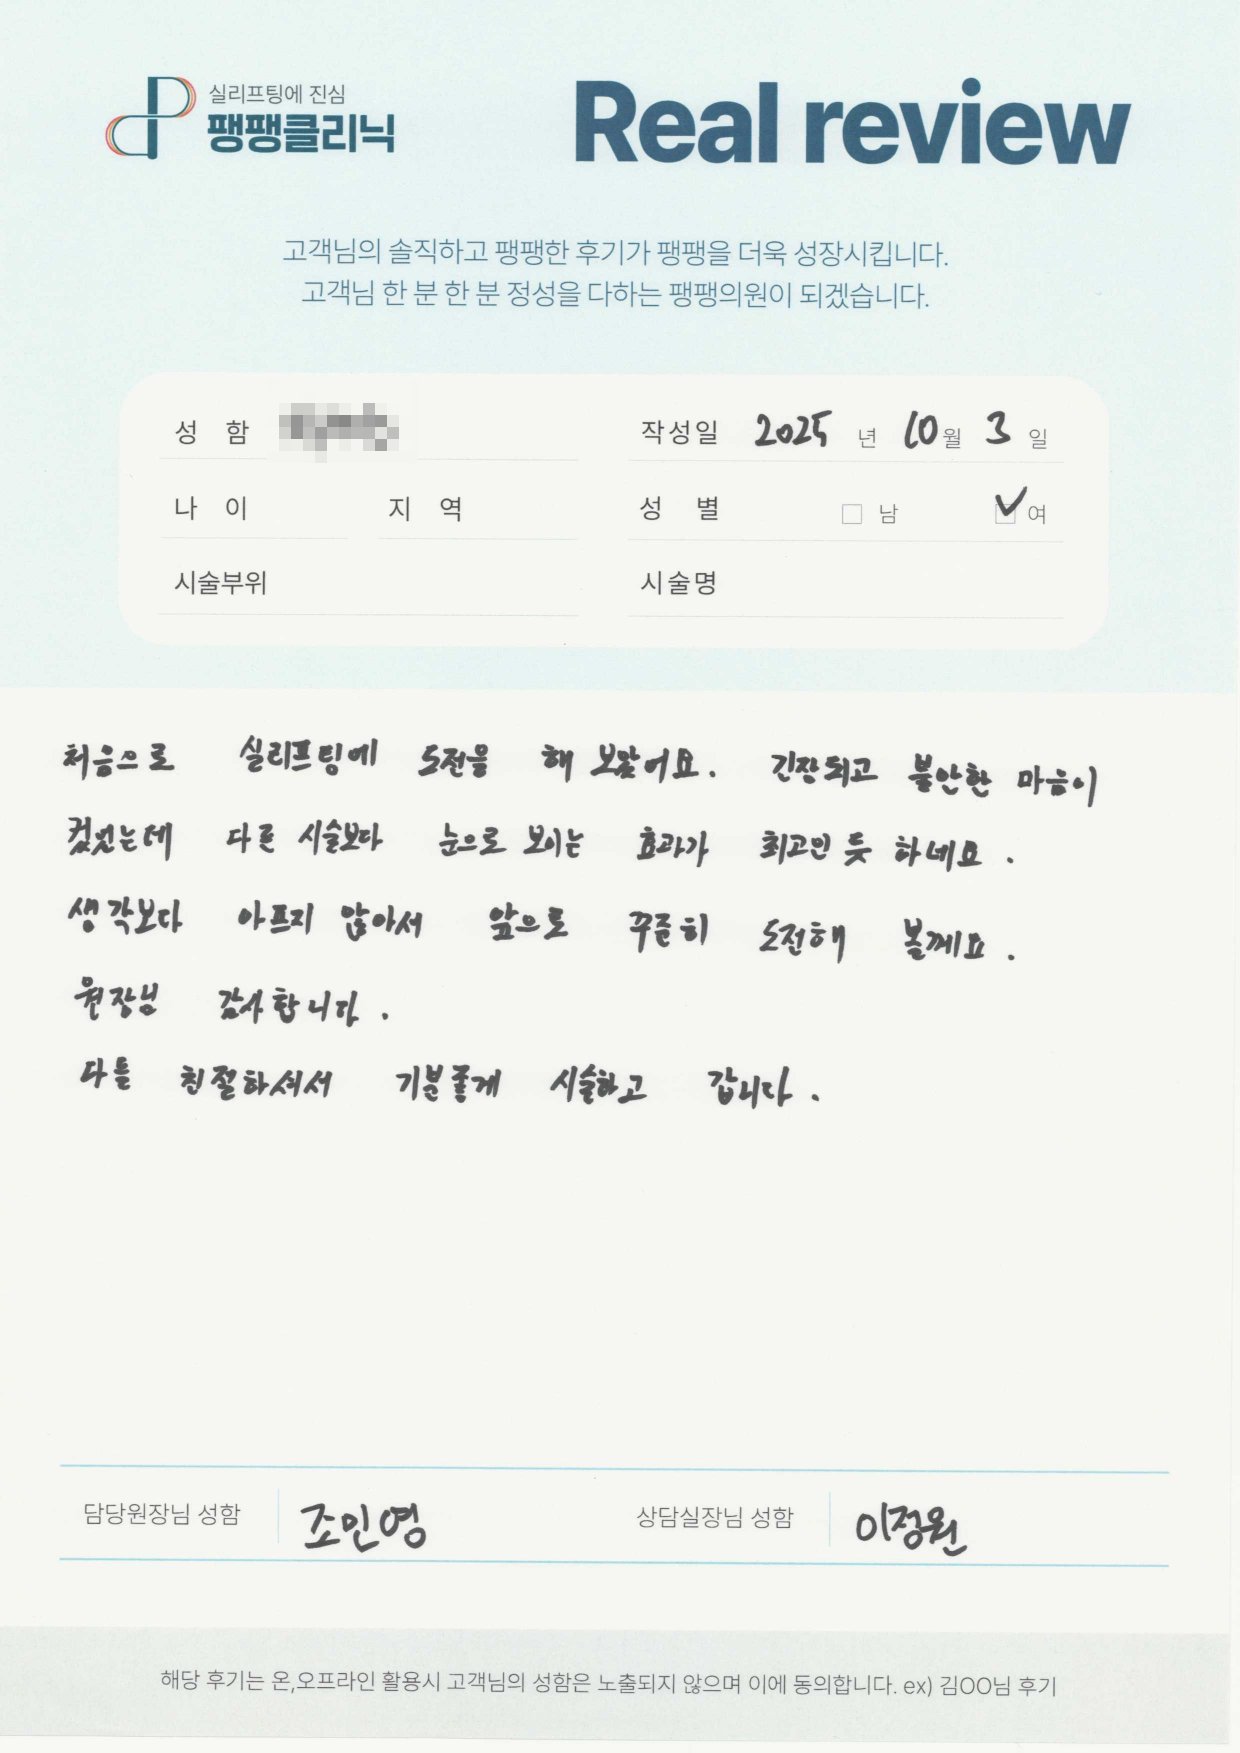 실리프팅에 진심
팽팽클리닉
Real review
고객님의 솔직하고 팽팽한 후기가 팽팽을 더욱 성장시킵니다.
고객님 한 분 한 분 정성을 다하는 팽팽의원이 되겠습니다.
성 함
작성일 2025 년 10 월 3 일
나 이 지 역 성 별 남 여
시술부위 시술명
처음으로 실리프팅에 도전을 해 보았어요. 긴장되고 불안한 마음이
컸었는데 다른 시술보다 눈으로 보이는 효과가 최고인 듯 하네요.
생각보다 아프지 않아서 앞으로 꾸준히 도전해 볼께요.
원장님 감사합니다.
다들 친절하셔서 기분좋게 시술하고 갑니다.
담당원장님 성함 조민영 상담실장님 성함 이정원
해당 후기는 온,오프라인 활용시 고객님의 성함은 노출되지 않으며 이에 동의합니다. ex) 김OO님 후기